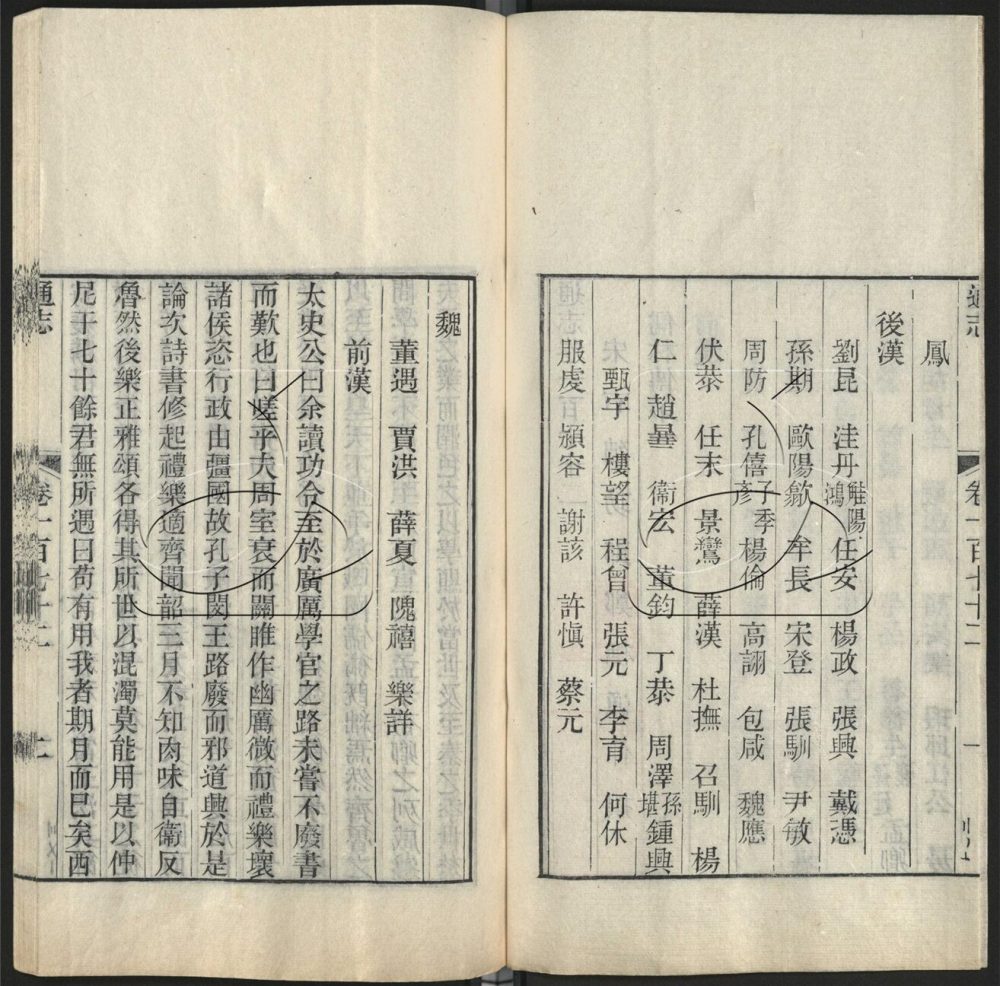 鳳
後漢
劉昆 洼丹 觟陽鴻 任安 楊政 張興 戴憑
孫期 歐陽歙 牟長 宋登 張馴 尹敏
周防 孔僖 子季彥 楊倫 高詡 包咸 魏應
伏恭 任末 景鸞 薛漢 杜撫 召馴 楊
仁 趙曅 衞宏 董鈞 丁恭 周澤 孫堪 鍾興
甄宇 樓望 程曾 張元 李育 何休
服虔 潁容 謝該 許愼 蔡元
通志
卷一百七十二
一
魏
董遇 賈洪 薛夏 隗禧 樂詳
前漢
太史公曰余讀功令至於廣厲學官之路未嘗不廢書
而歎也曰嗟乎夫周室衰而關雎作幽厲微而禮樂壞
諸侯恣行政由彊國故孔子閔王路廢而邪道興於是
論次詩書修起禮樂適齊聞韶三月不知肉味自衞反
魯然後樂正雅頌各得其所世以混濁莫能用是以仲
尼干七十餘君無所遇曰苟有用我者期月而已矣西
通志
卷一百七十二
二